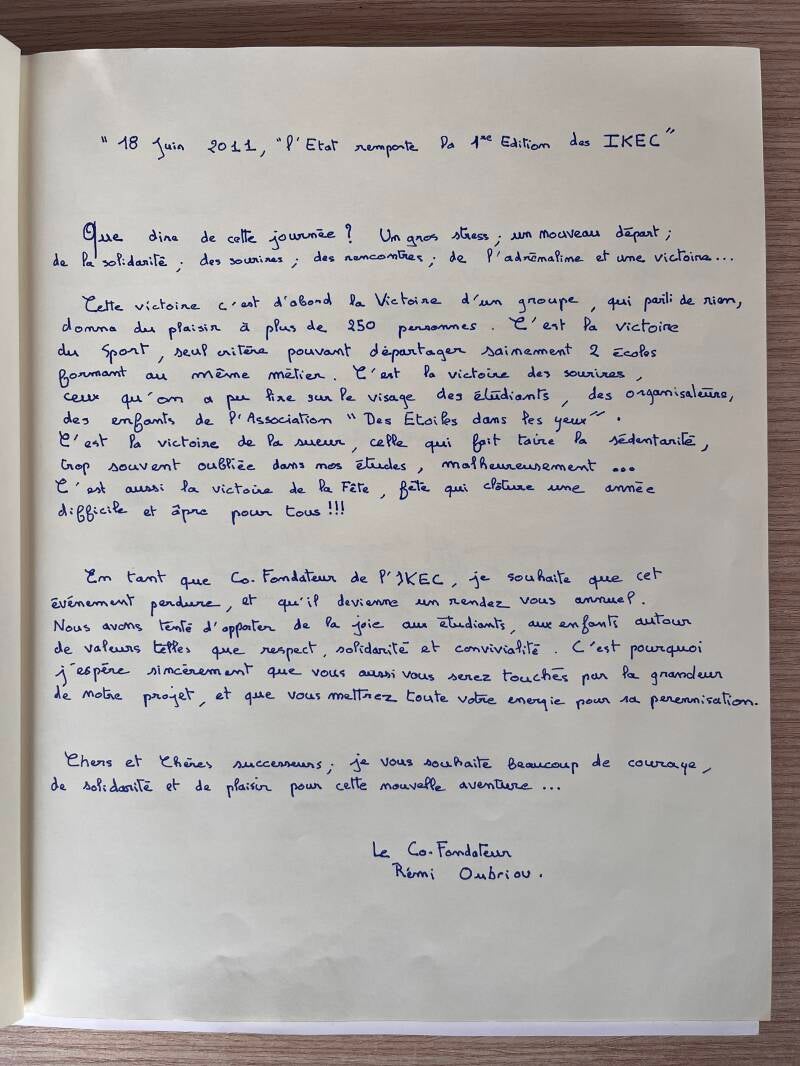 " 18 Juin 2011, "l'Etat remporte la 1re Edition des IKEC"
Que dire de cette journée ? Un gros stress ; un nouveau départ ;
de la solidarité ; des sourires ; des rencontres ; de l'adrénaline et une victoire...
Cette victoire c'est d'abord la Victoire d'un groupe, qui parti de rien,
donna du plaisir à plus de 250 personnes. C'est la victoire
du Sport, seul critère pouvant départager sainement 2 écoles
formant au même métier. C'est la victoire des sourires,
ceux qu'on a pu lire sur le visage des étudiants, des organisateurs,
des enfants de l'Association "Des Etoiles dans les yeux".
C'est la victoire de la sueur, celle qui fait taire la sédentarité,
trop souvent oubliée dans nos études, malheureusement ...
C'est aussi la victoire de la Fête, fête qui clôture une année
difficile et âpre pour tous !!!
En tant que Co-Fondateur de l'IKEC, je souhaite que cet
événement perdure, et qu'il devienne un rendez vous annuel.
Nous avons tenté d'apporter de la joie aux étudiants, aux enfants autour
de valeurs telles que respect, solidarité et convivialité. C'est pourquoi
j'espère sincèrement que vous aussi vous serez touchés par la grandeur
de notre projet, et que vous mettrez toute votre energie pour sa perennisation.
Chers et Chères successeurs ; je vous souhaite beaucoup de courage,
de solidarité et de plaisir pour cette nouvelle aventure ...
Le Co-Fondateur
Rémi Oubriou.